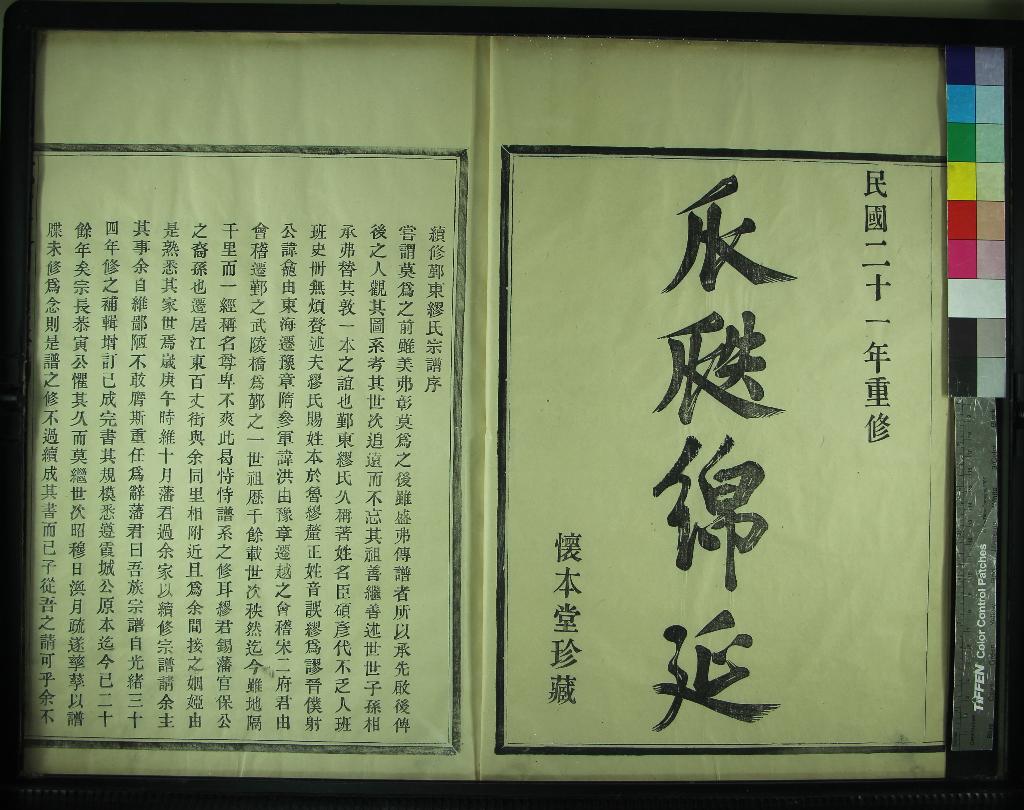 民國二十一年重修
瓜瓞綿延
懷本堂珍藏
續修鄞東繆氏宗譜序
嘗謂莫爲之前雖美弗彰莫爲之後雖盛弗傳譜者所以承先啟後俾
後之人觀其圖系考其世次追遠而不忘其祖善繼善述世世子孫相
承弗替其敦一本之誼也鄞東繆氏久稱著姓名臣碩彥代不乏人班
班史冊無煩贅述夫繆氏賜姓本於魯繆釐正姓音誤繆爲謬晉僕射
公諱龕由東海遷豫章隋參軍諱洪由豫章遷越之會稽宋二府君由
會稽遷鄞之武陵橋爲鄞之一世祖歷千餘載世次秩然迄今雖地隔
千里而一經稱名尊卑不爽此曷恃恃譜系之修耳繆君錫藩官保公
之裔孫也遷居江東百丈街與余同里相附近且爲余間接之姻婭由
是熟悉其家世焉歲庚午時維十月藩君過余家以續修宗譜請余主
其事余自維鄙陋不敢膺斯重任爲辭藩君曰吾族宗譜自光緒三十
四年修之補輯增訂已成完書其規模悉遵霞城公原本迄今已二十
餘年矣宗長恭寅公懼其久而莫繼世次昭穆日漓月疏遂孳孳以譜
牒未修爲念則是譜之修不過續成其書而已子從吾之請可乎余不
TIFFEN Color Control Patches